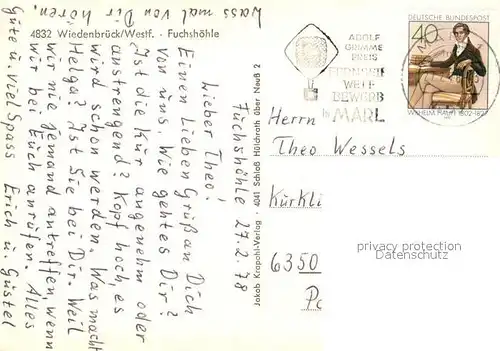 Lass mal von Dir hören.
4832 Wiedenbrück/Westf. · Fuchshöhle
Fuchshöhle 27.2.78
Lieber Theo!
Einen Lieben Gruß an Dich
von uns. Wie geht es Dir?
Ist die Kur angenehm oder
anstrengend? Kopf hoch, es
wird schon werden. Was macht
Helga? Ist Sie bei Dir. Weil
wir nie jemand antreffen, wenn
wir bei Euch anrufen. Alles
Gute u. viel Spass Erich u. Gustel
Jakob Krapohl-Verlag · 4041 Schloß Hülchrath über Neuß 2
ADOLF
GRIMME
PREIS
FERNSEH
WETT
BEWERB
in MARL
DEUTSCHE BUNDESPOST
40
WILHELM HAUFF 1802-1827
Herrn
Theo Wessels
Kürkli
6350
privacy protection
Datenschutz